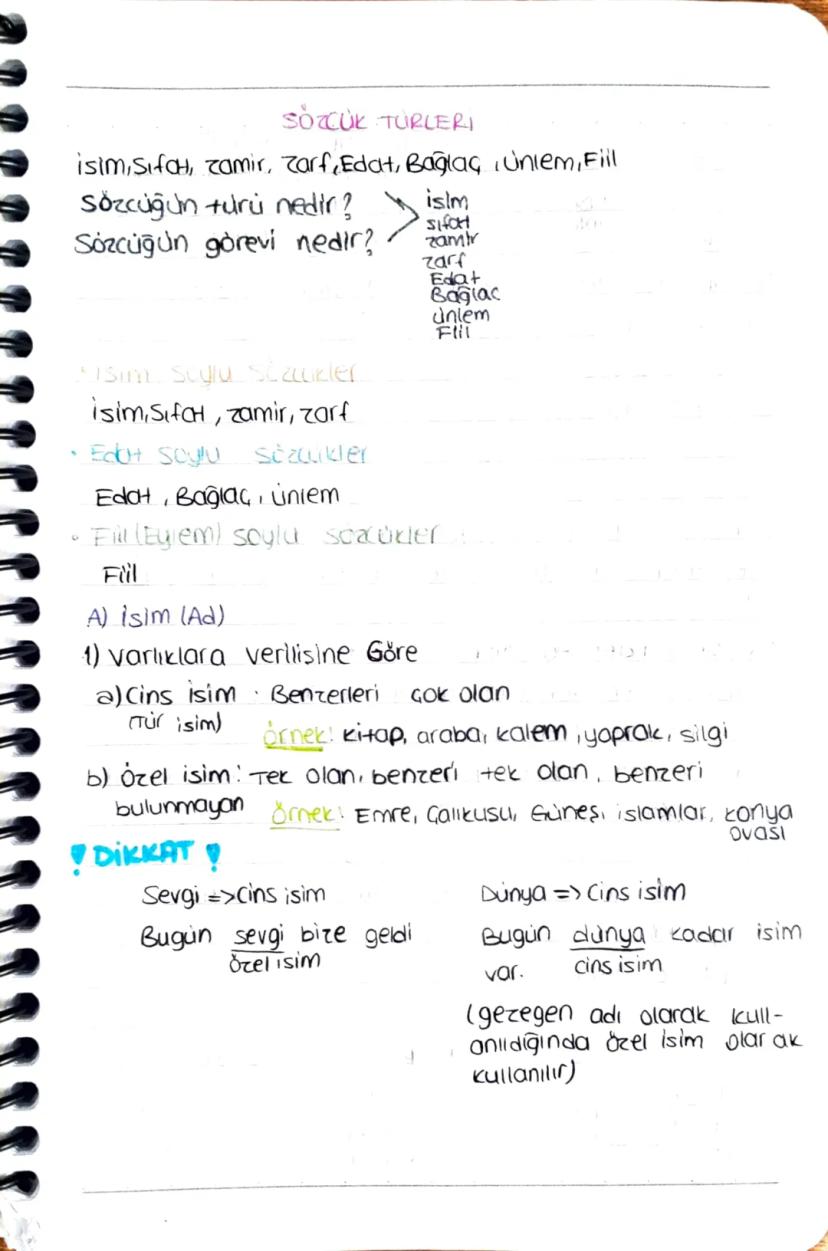 SÖZCÜK TÜRLERİ
isim, Sıfat, zamir, zarf, Edat, Bağlaç, ünlem, Fiil
Sözcüğün türü nedir?
Sözcüğün görevi nedir?
isim
sıfat
zamir
zarf
Edat
Bağlaç
ünlem
Fiil
• isim soylu sözcükler
isim, Sıfat, zamir, zarf
• Edat soylu sözcükler
Edat, Bağlaç, ünlem
• Fiil (Eylem) soylu sözcükler
Fiil
A) isim (Ad)
1) varlıklara verilisine Göre
a) Cins isim · Benzerleri çok olan
(Tür isim) örnek: kitap, araba, kalem, yaprak, silgi
b) özel isim: Tek olan, benzeri tek olan, benzeri
bulunmayan örnek: Emre, Çalıkusu, Güneş, islamlar, konya
ovası
! DİKKAT !
Sevgi => Cins isim
Bugün sevgi bize geldi
özel isim
Dünya => Cins isim
Bugün dünya kadar isim
var. cins isim
(gezegen adı olarak kull-
anıldığında özel isim olarak
kullanılır)